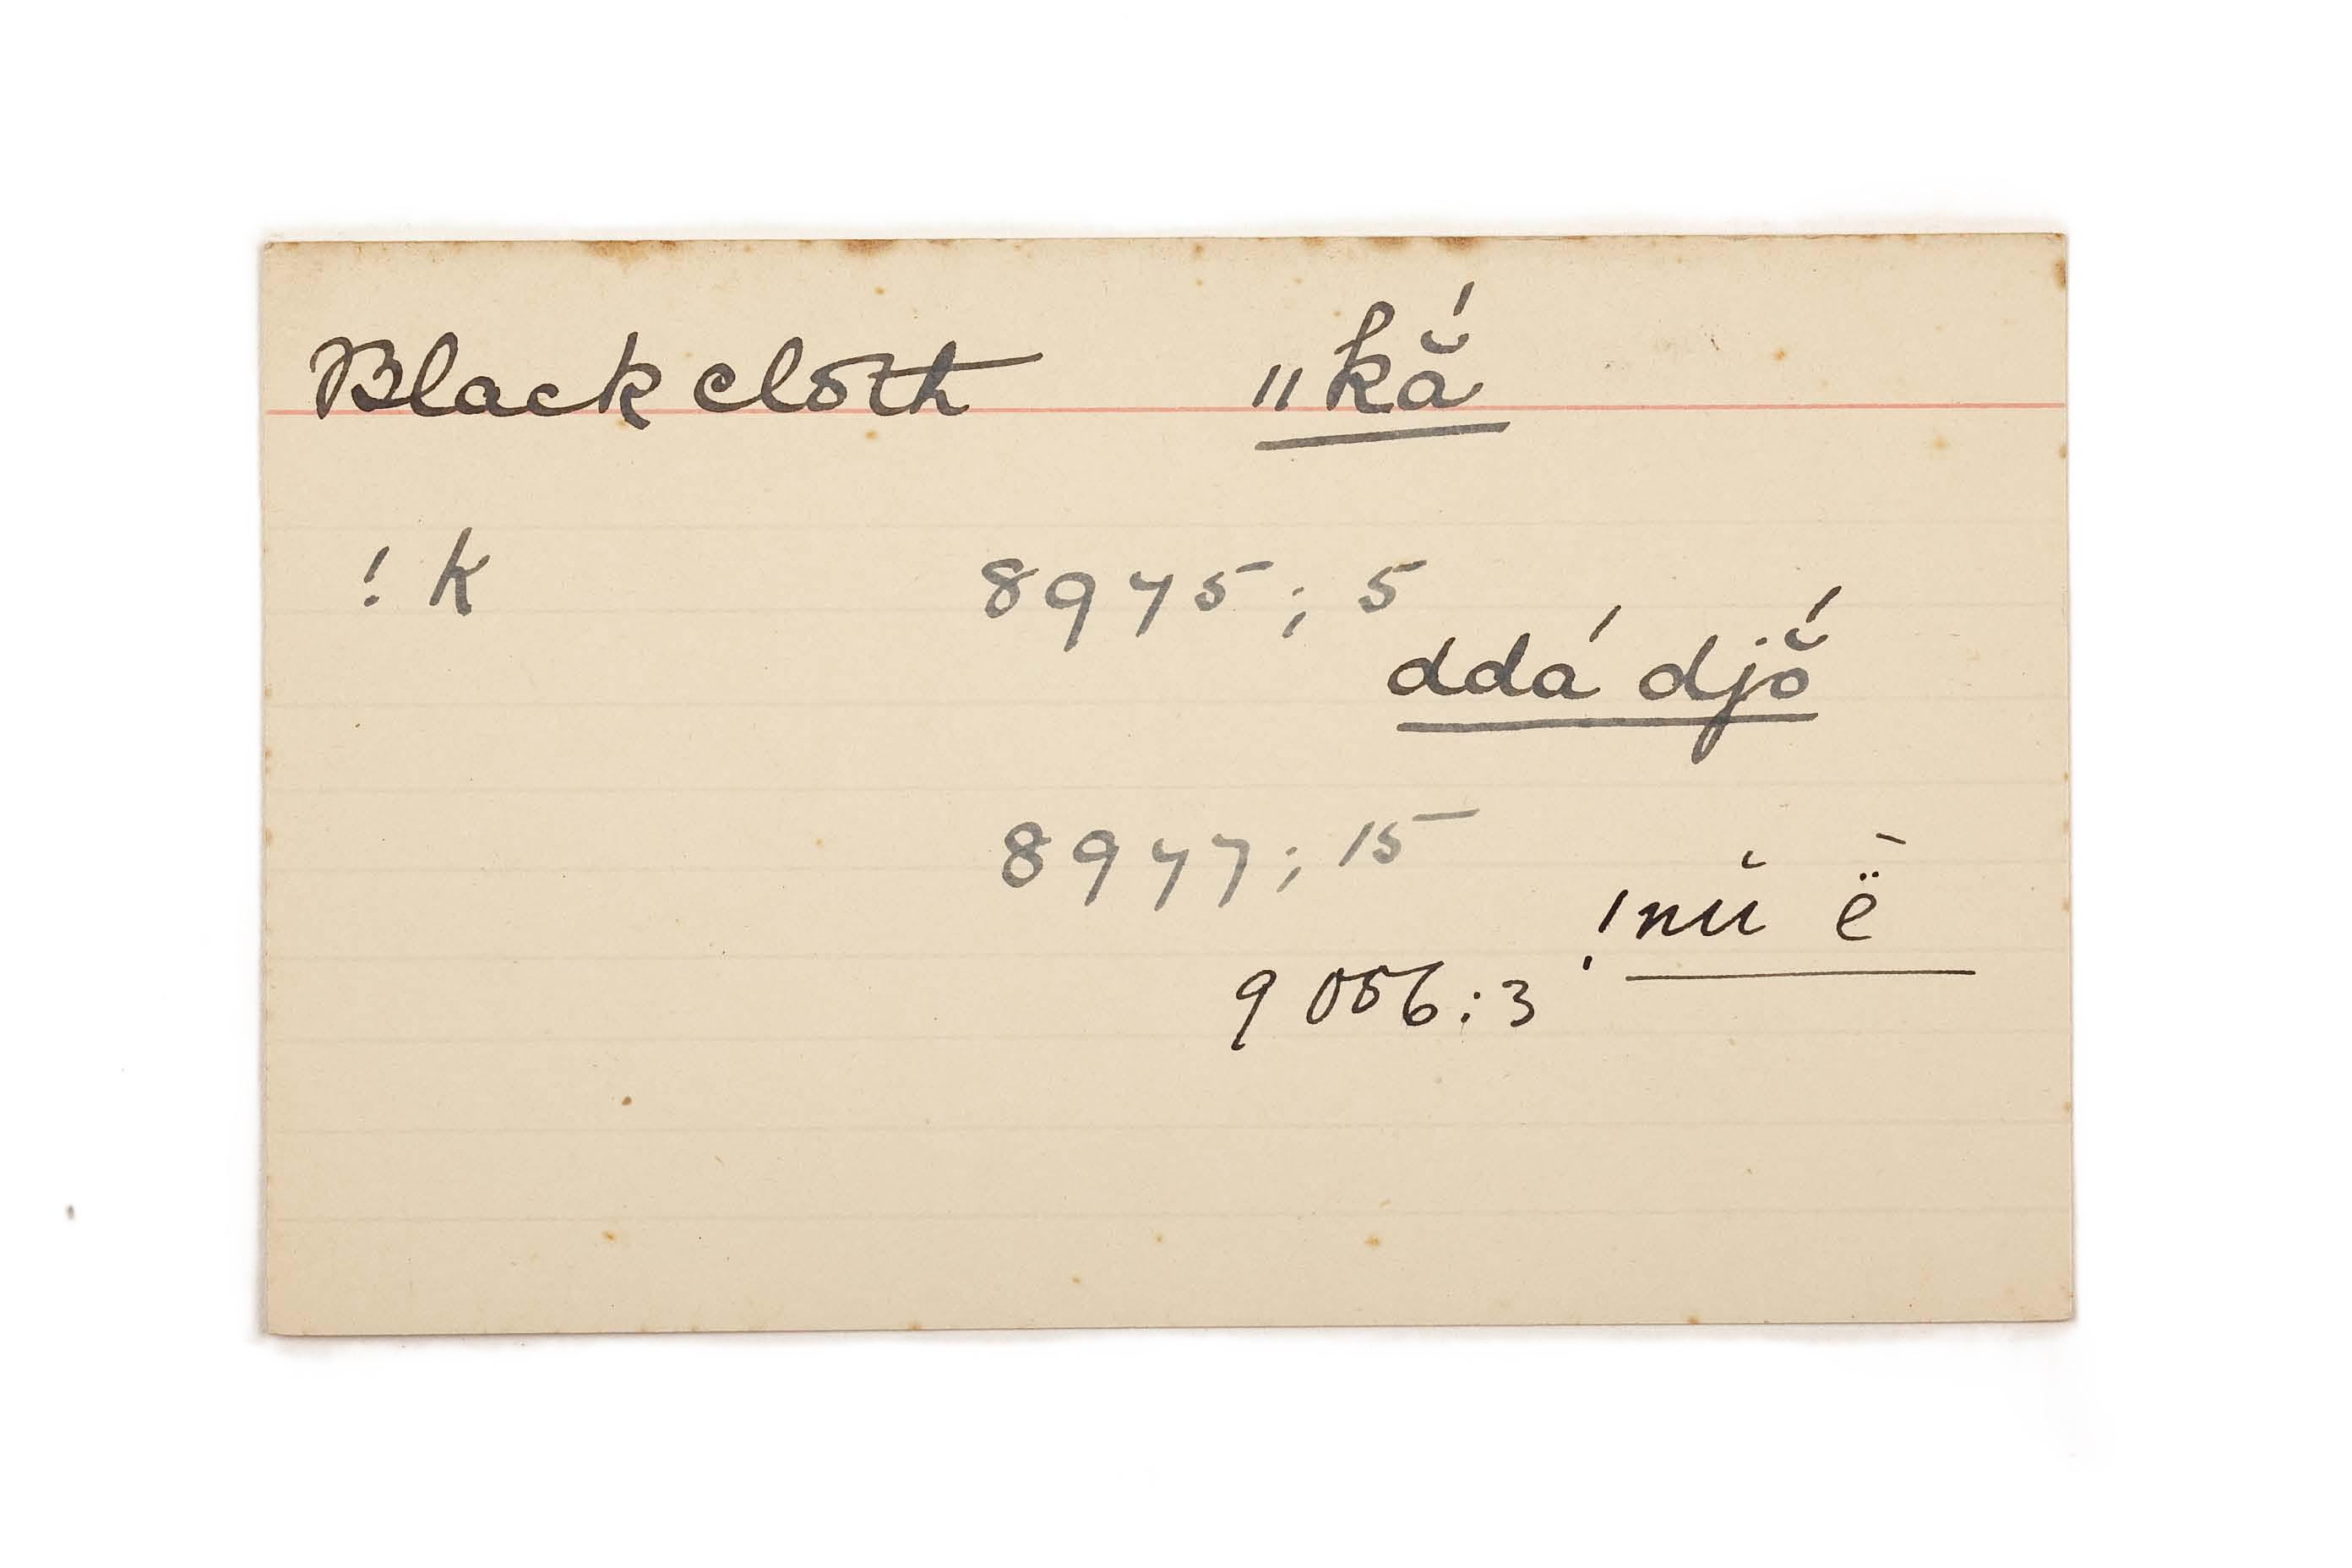 Black cloth ǁkắ
! k 8975; 5
ddá djŏ́
8977; 15
!nŭ ë̄
9056:3